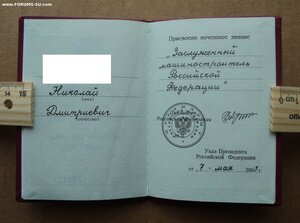 www.FORUMS-SU.com
Николай
(имя)
Дмитриевич
(отчество)
Присвоено почетное звание
„Заслуженный
машиностроитель
Российской
Федерации"
Президент
Российской Федерации
Указ Президента
Российской Федерации
от „7" мая 2005 г.
14 15